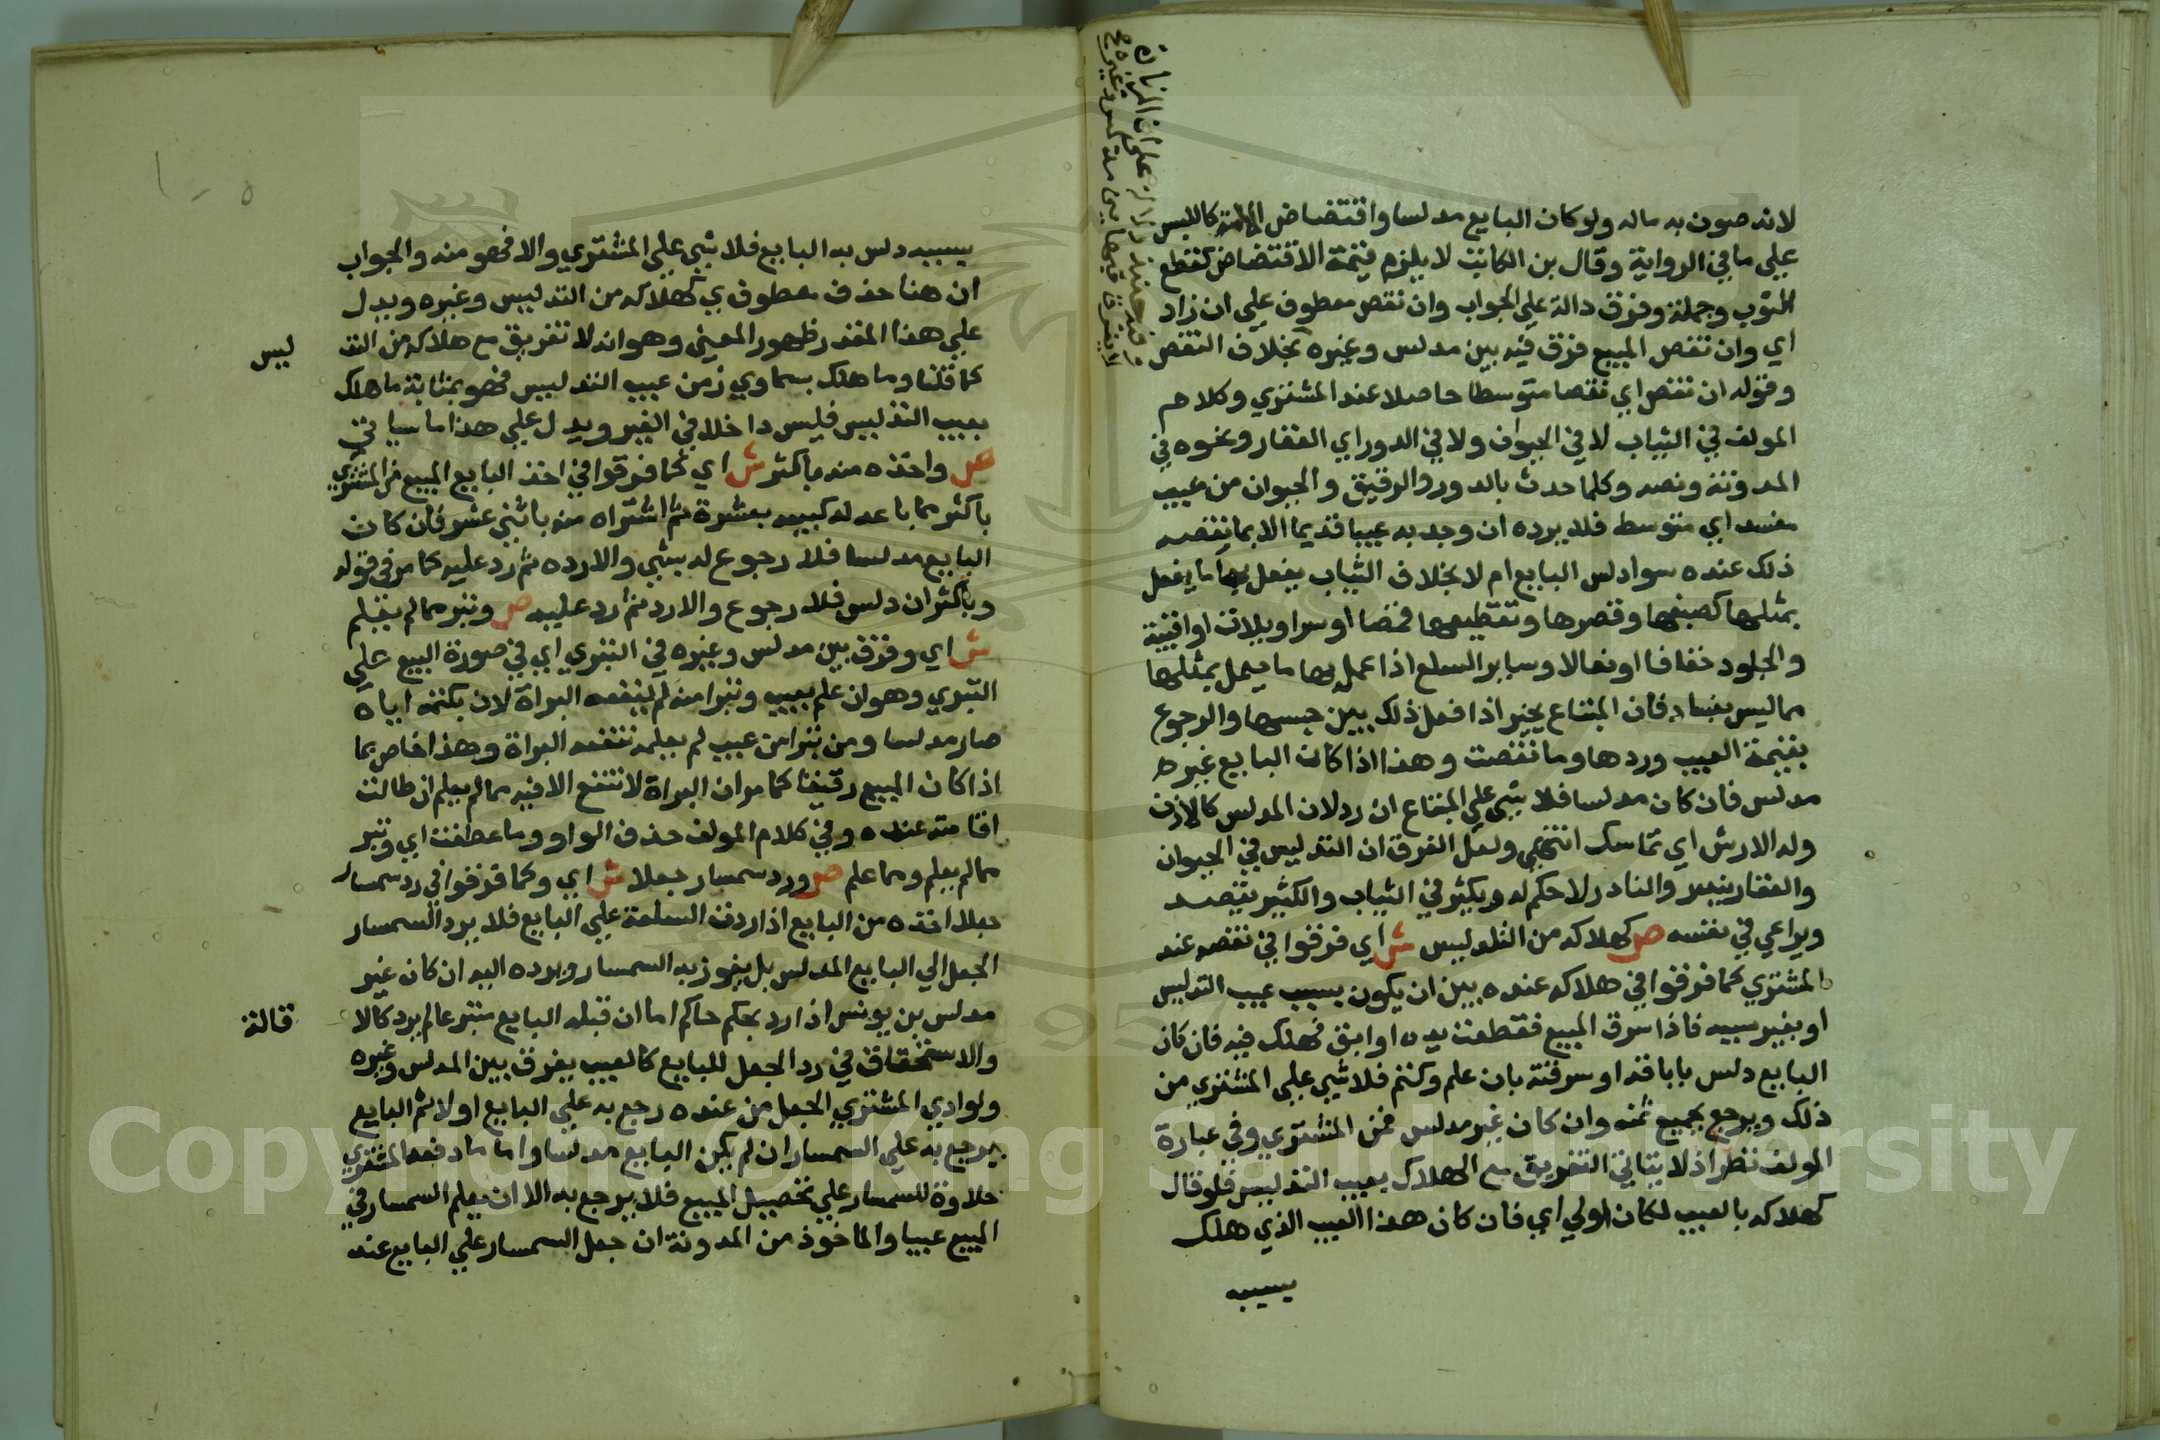 لانه صون به ماله ولو كان البايع مدلسا واقتضاض الامة كاللبس
علي ما في الرواية وقال بن الكاتب لا يلزم قيمة الاقتضاض كقطع
الثوب وجملة وفرق دالة علي الجواب وان نقص معطوف علي ان زاد
اي وان نقص المبيع فرق فيه بين مدلس وغيره بخلاف النقص
وقوله ان نقص اي نقصا متوسطا حاصلا عند المشتري وكلام
المولف في الثياب لا في الحيوان ولا في الدور اي العقار ونحوه في
المدونة ونصه وكلما حدث بالدور والرقيق والحيوان من عيب
مفسد اي متوسط فلا يرده ان وجد به عيبا قديما الا بما نقصه
ذلك عنده سوا دلس البايع ام لا بخلاف الثياب يفعل بها ما يفعل
بمثلها كصبغها وقصرها وتقطيعها قمصا او سراويلات او اقبية
والجلود خفافا او نعالا وساير السلع اذا عمل بها ما يعمل بمثلها
مما ليس بفساد فان المبتاع يخير اذا فعل ذلك بين حبسها والرجوع
بقيمة العيب وردها وما نقصت وهذا اذا كان البايع غير
مدلس فان كان مدلسا فلا شي علي المبتاع ان رد لان المدلس كالاذن
وله الارش اي تماسك انتهي ولعل الفرق ان التدليس في الحيوان
والعقار يندر والنادر لا حكم له ويكثر في الثياب والكثير يقصد
ويراعي في نفسه ص كهلاكه من التدليس ش اي فرقوا في نقصه عند
المشتري كما فرقوا في هلاكه عنده بين ان يكون بسبب عيب التدليس
او بغير سببه فاذا سرق المبيع فقطعت يده او ابق فهلك فيه فان كان
البايع دلس باباقه او سرقته بان علم وكتم فلا شي علي المشتري من
ذلك ويرجع بجميع ثمنه وان كان غير مدلس فمن المشتري وفي عبارة
المولف نظر اذ لا يتاتي التفريق مع الهلاك بعيب التدليس فلو قال
كهلاكه بالعيب لكان اولي اي فان كان هذا العيب الذي هلك
بسببه
بسببه دلس به البايع فلا شي علي المشتري والا فهو منه والجواب
ان هنا حذف معطوف ي كهلاكه من التدليس وغيره ويدل
علي هذا المقدر ظهور المعني وهو انه لا تفريق مع هلاكه من التد
ليس
كما قلنا وما هلك بسماوي زمن عيب التدليس فهو بمثابة ما هلك
بعيب التدليس فليس داخلا في الغير ويدل علي هذا ما سياتي
ص واخذه منه باكثر ش اي كما فرقوا في اخذ البايع المبيع من المشتري
باكثر مما باعه له كبيعه بعشرة ثم اشتراه منه باثني عشر فان كان
البايع مدلسا فلا رجوع له بشي والا رده ثم رد عليه كما مر في قوله
وباكثر ان دلس فلا رجوع والا رد ثم رد عليه ص وتبر مما لم يعلم
ش اي وفرق بين مدلس وغيره في التبري اي في صورة البيع علي
التبري وهو ان علم بعيب وتبرا منه لم ينفعه البراة لان بكتمه اياه
صار مدلسا ومن تبرا من عيب لم يعلمه تنفعه البراة وهذا خاص بما
اذا كان المبيع رقيقا كما مر ان البراة لا تنفع الا فيه مما لم يعلم ان طالت
اقامته عنده وفي كلام المولف حذف الواو وما عطفت اي وتبر
مما لم يعلم ومما علم ص ورد سمسار جعلا ش اي وكما فرقوا في رد سمسار
جعلا اخذه من البايع اذا ردت السلعة علي البايع فلا يرد السمسار
الجعل الي البايع المدلس بل يفوز به السمسار ويرده اليه ان كان غير
مدلس بن يونس اذا رد بحكم حاكم اما ان قبله البايع متبرعا لم يرد كالا
قالة
والاستحقاق في رد الجعل للبايع كالعيب يفرق بين المدلس وغيره
ولو ادي المشتري الجعل من عنده رجع به علي البايع اولا ثم البايع
يرجع به علي السمسار ان لم يكن البايع مدلسا واما ما دفعه المشتري
حلاوة للسمسار علي تحصيل المبيع فلا يرجع به الا ان يعلم السمسار في
المبيع عيبا والماخوذ من المدونة ان جعل السمسار علي البايع عند
Copyright © King Saud University